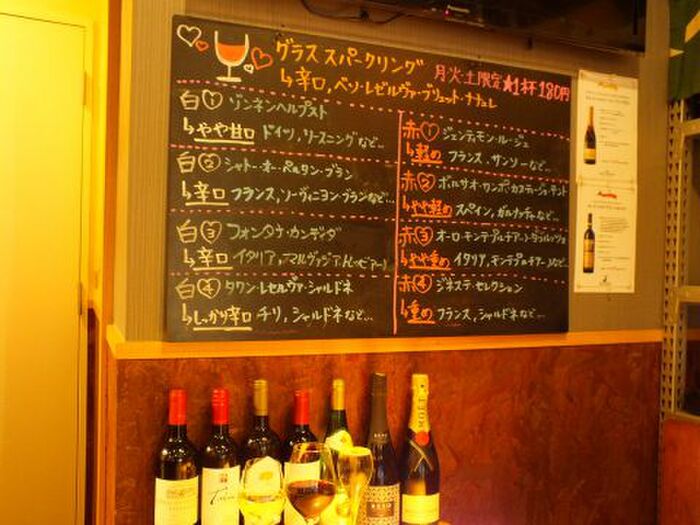 グラス スパークリング
月火・土限定★1杯180円
↳辛口、ベソ・レゼルヴァ・ブリュット・ナチュレ
白① ゾンネンヘルプスト
↳やや甘口 ドイツ、リースニング など…
白② シャトー・オー・ペルタン・ブラン
↳辛口 フランス、ソーヴィニヨン・ブラン など…
白③ フォンタナ・カンディダ
↳辛口 イタリア、マルヴァジア
白④ タワン・レゼルヴァ・シャルドネ
↳しっかり辛口 チリ、シャルドネ など…
赤① ジェンティモン・ルージュ
↳軽め フランス、サンソー など…
赤② ボルサオ・カンポ
↳やや軽め スペイン、ガルナッチャ など…
赤③ オーロ・モンテプルチアーノ・ダブルッツォ
↳やや重め イタリア、モンテプルチアーノ など
赤④ ジネステ・セレクション
↳重め フランス、シャルドネ など…
MOËT